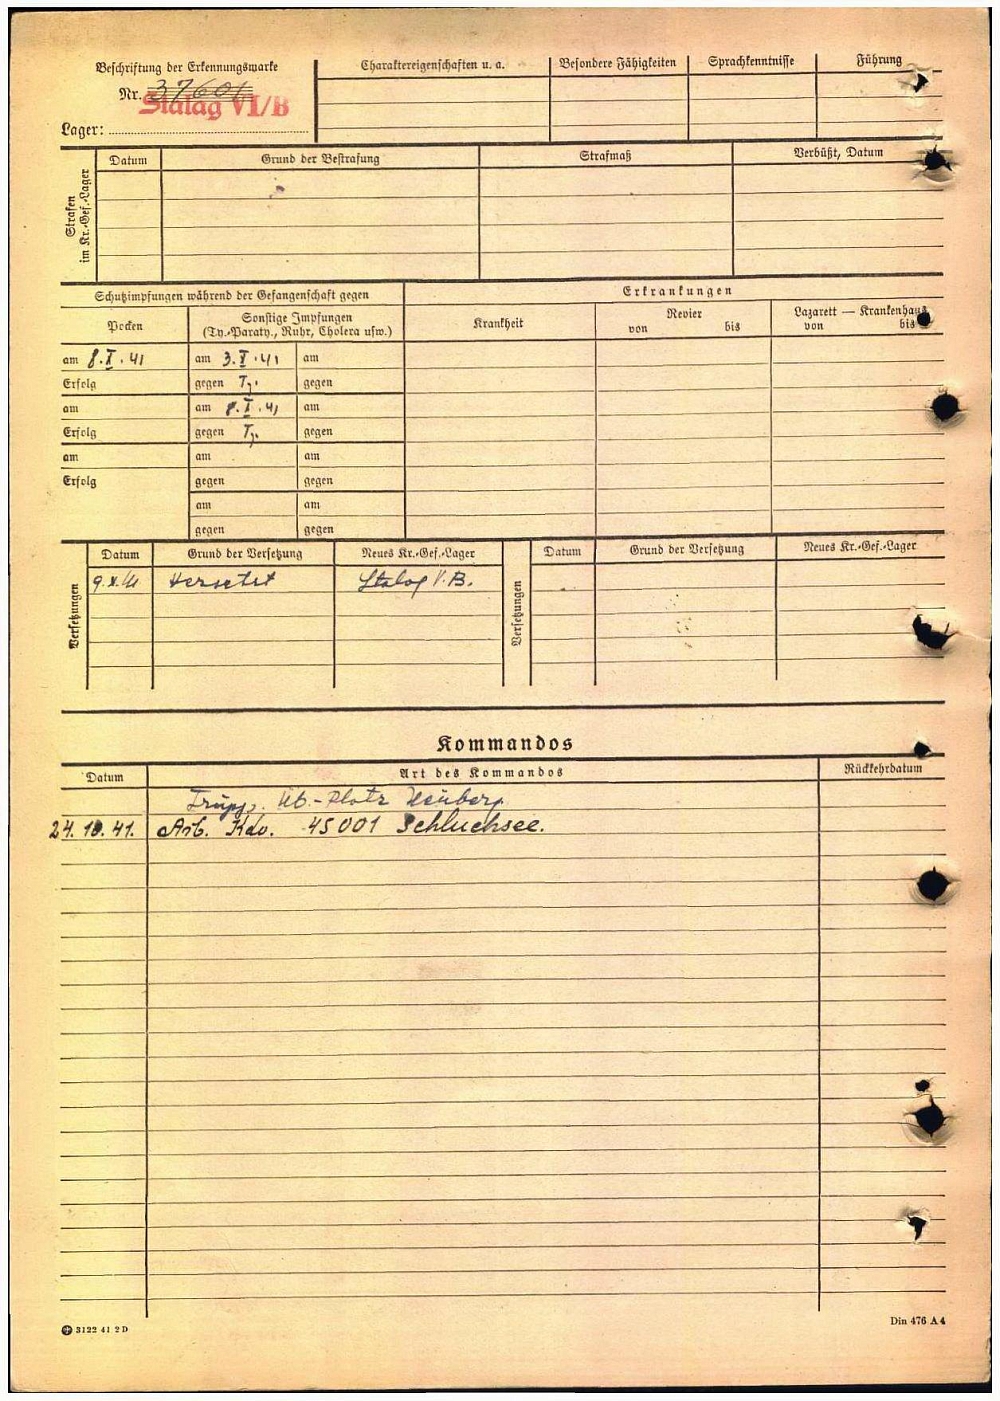 Beschriftung der Erkennungsmarke
Nr. 37601
Stalag VI/B
Lager:
Charaktereigenschaften u. a.
Besondere Fähigkeiten
Sprachkenntnisse
Führung
Strafen im Kr.-Gef.-Lager
Datum
Grund der Bestrafung
Strafmaß
Verbüßt, Datum
Schutzimpfungen während der Gefangenschaft gegen
Erkrankungen
Pocken
Sonstige Impfungen
(Ty.-Paraty., Ruhr, Cholera usw.)
Krankheit
Revier
von bis
Lazarett — Krankenhaus
von bis
am 8.X.41 am 3.X.41 am
Erfolg gegen Ty. gegen
am am 8.X.41 am
Erfolg gegen Ty. gegen
am am am
Erfolg gegen gegen
am am
gegen gegen
Versetzungen
Datum Grund der Versetzung Neues Kr.-Gef.-Lager
9.X.41 Versetzt Stalag V.B.
Versetzungen
Datum Grund der Versetzung Neues Kr.-Gef.-Lager
Kommandos
Datum Art des Kommandos Rückkehrdatum
Üb.-Platz Heuberg
24.10.41. Arb. Kdo. 45001 Schluchsee.
3122 41 2D
Din 476 A4